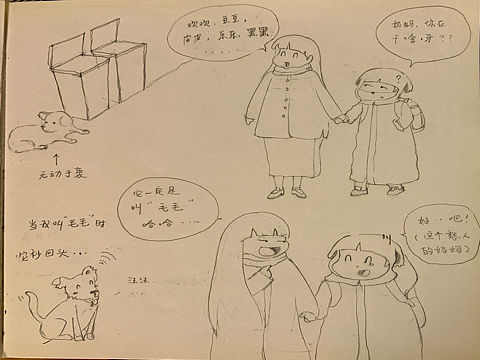 欢欢，豆豆，
皮皮，乐乐，黑黑
，……
妈妈，你在
干啥呀？？
?
无动于衷
当我叫“毛毛”时
它秒回头…
它一定是
叫“毛毛”
哈哈……
汪汪…
好…吧！
（这个
的妈妈）